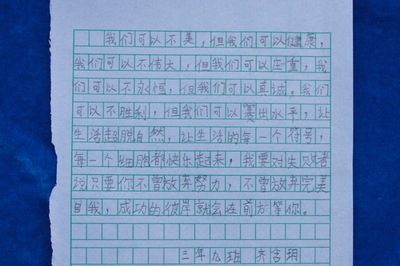 我们可以不美，但我们可以健康，
我们可以不伟大，但我们可以庄重，我
们可以不永恒，但我们可以真诚，我们
可以不胜利，但我们可以赛出水平，让
生活超脱自然，让生活的每一个符号，
每一个细胞都快乐起来，我要对失败者
说只要你不曾放弃努力，不曾放弃完美
自我，成功的彼岸就会在前方等你。
三年九班 齐含玥